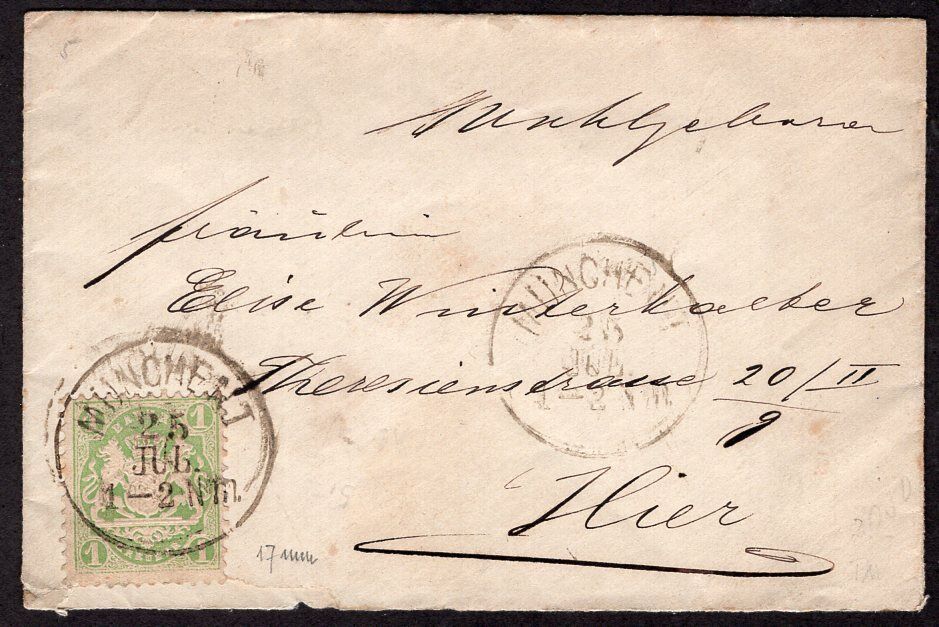 5
Wohlgeboren
Fräulein
Elise Winterhalter
Theresienstrasse 20/II
9
Hier
MÜNCHEN I
25
JUL.
1—2 Nm.
MÜNCHEN I
25
JUL.
1—2 Nm.
1 1
1 1
17 mm